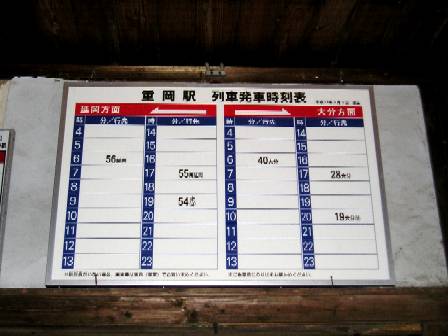 重岡駅 列車発車時刻表
延岡方面 大分方面
時 分/行先 時 分/行先 時 分/行先 時 分/行先
4 14 4 14
5 15 5 15
6 56 16 6 40大分 16
7 17 55南延岡 7 17 28大分
8 18 8 18
9 19 54 9 19
10 20 10 20 19大分
11 21 11 21
12 22 12 22
13 23 13 23